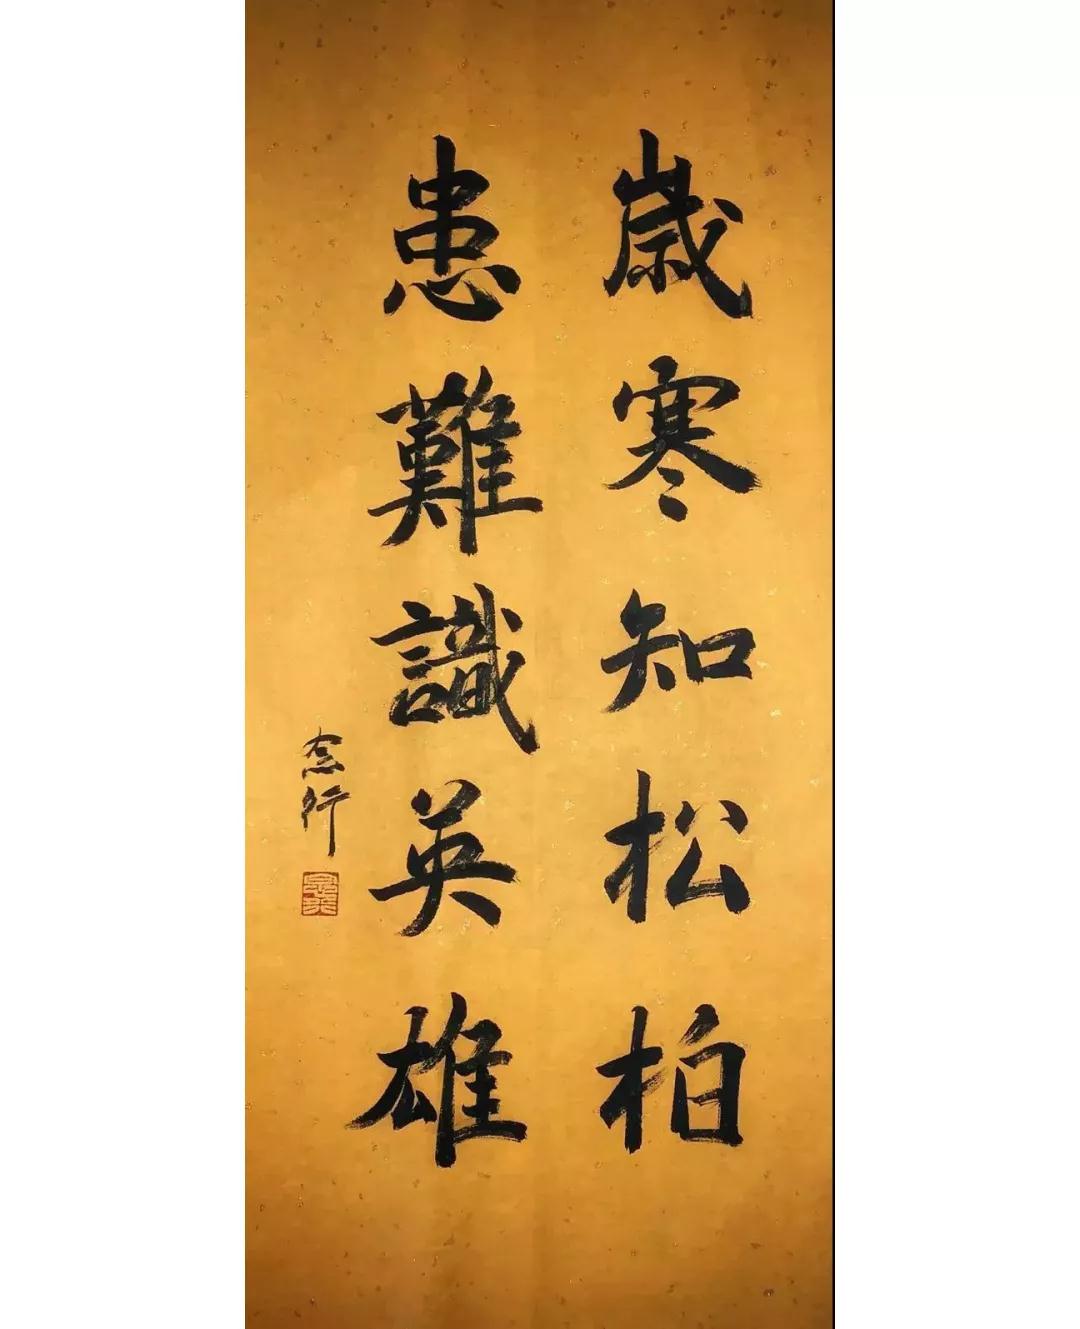 歲寒知松柏
患難識英雄